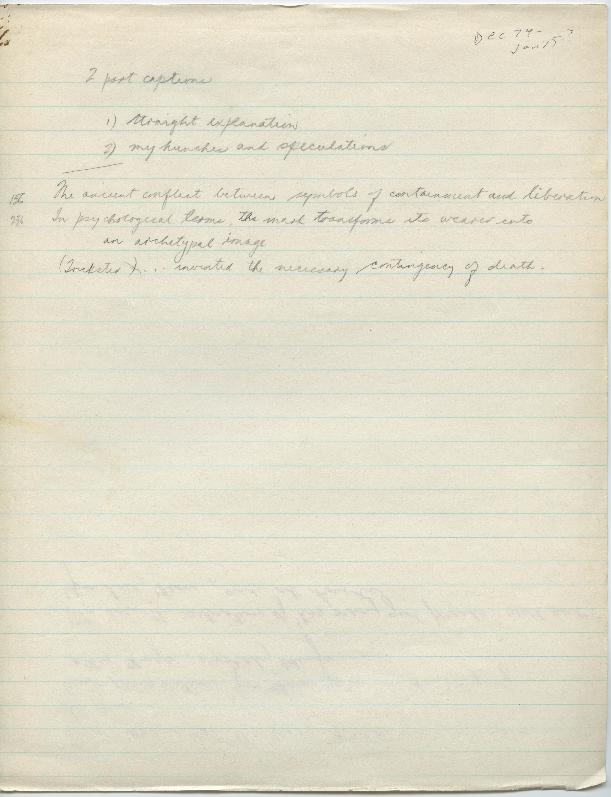 Dec 74-
Jan 75?
2 part captions
1) straight explanation
2) my hunches and speculations
156 The ancient conflict between symbols of containment and liberation
236 In psychological terms, the mask transforms its wearer into
an archetypal image
(Trickster) ... invented the necessary contingency of death.